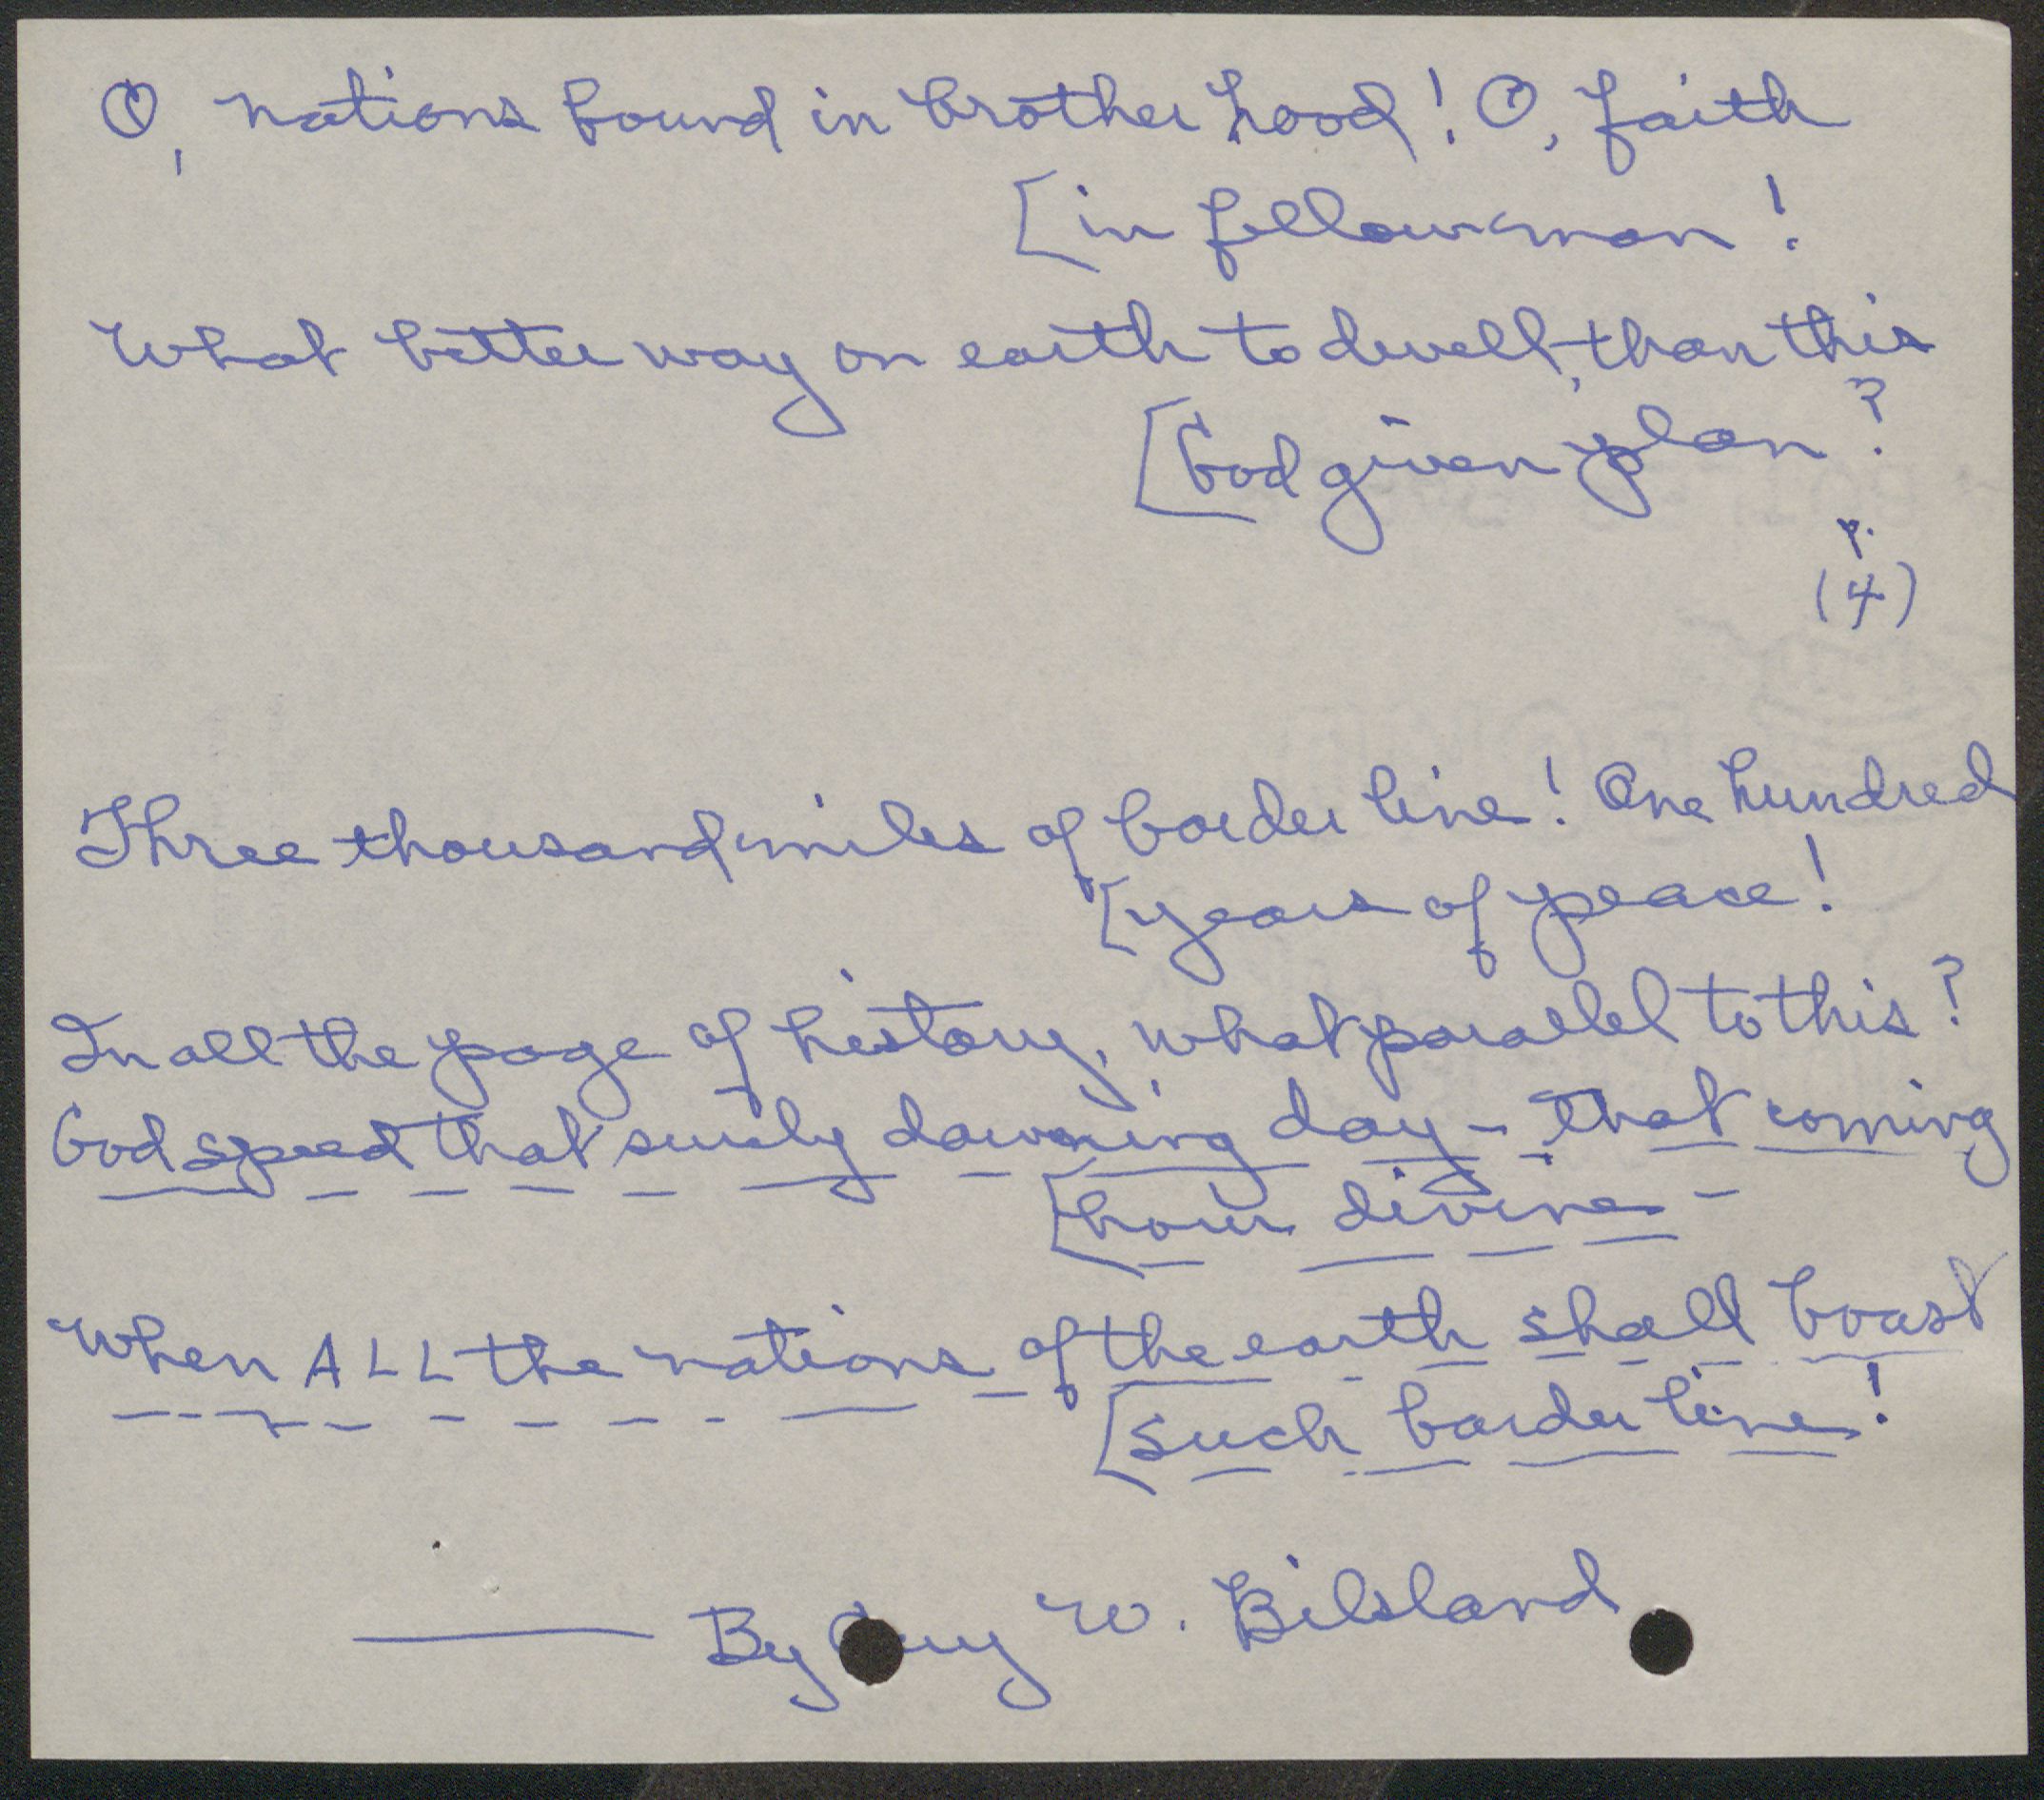 O, nations bound in brother hood! O, faith
[in fellow-man!
What better way on earth to dwell, than this
[God given plan?
P.
(4)
Three thousand miles of border line! One hundred
[years of peace!
In all the page of history, what parallel to this?
God speed that surely dawning day - that coming
[hour divine -
When ALL the nations of the earth shall boast
[such border line!
By Guy W. Bilsland